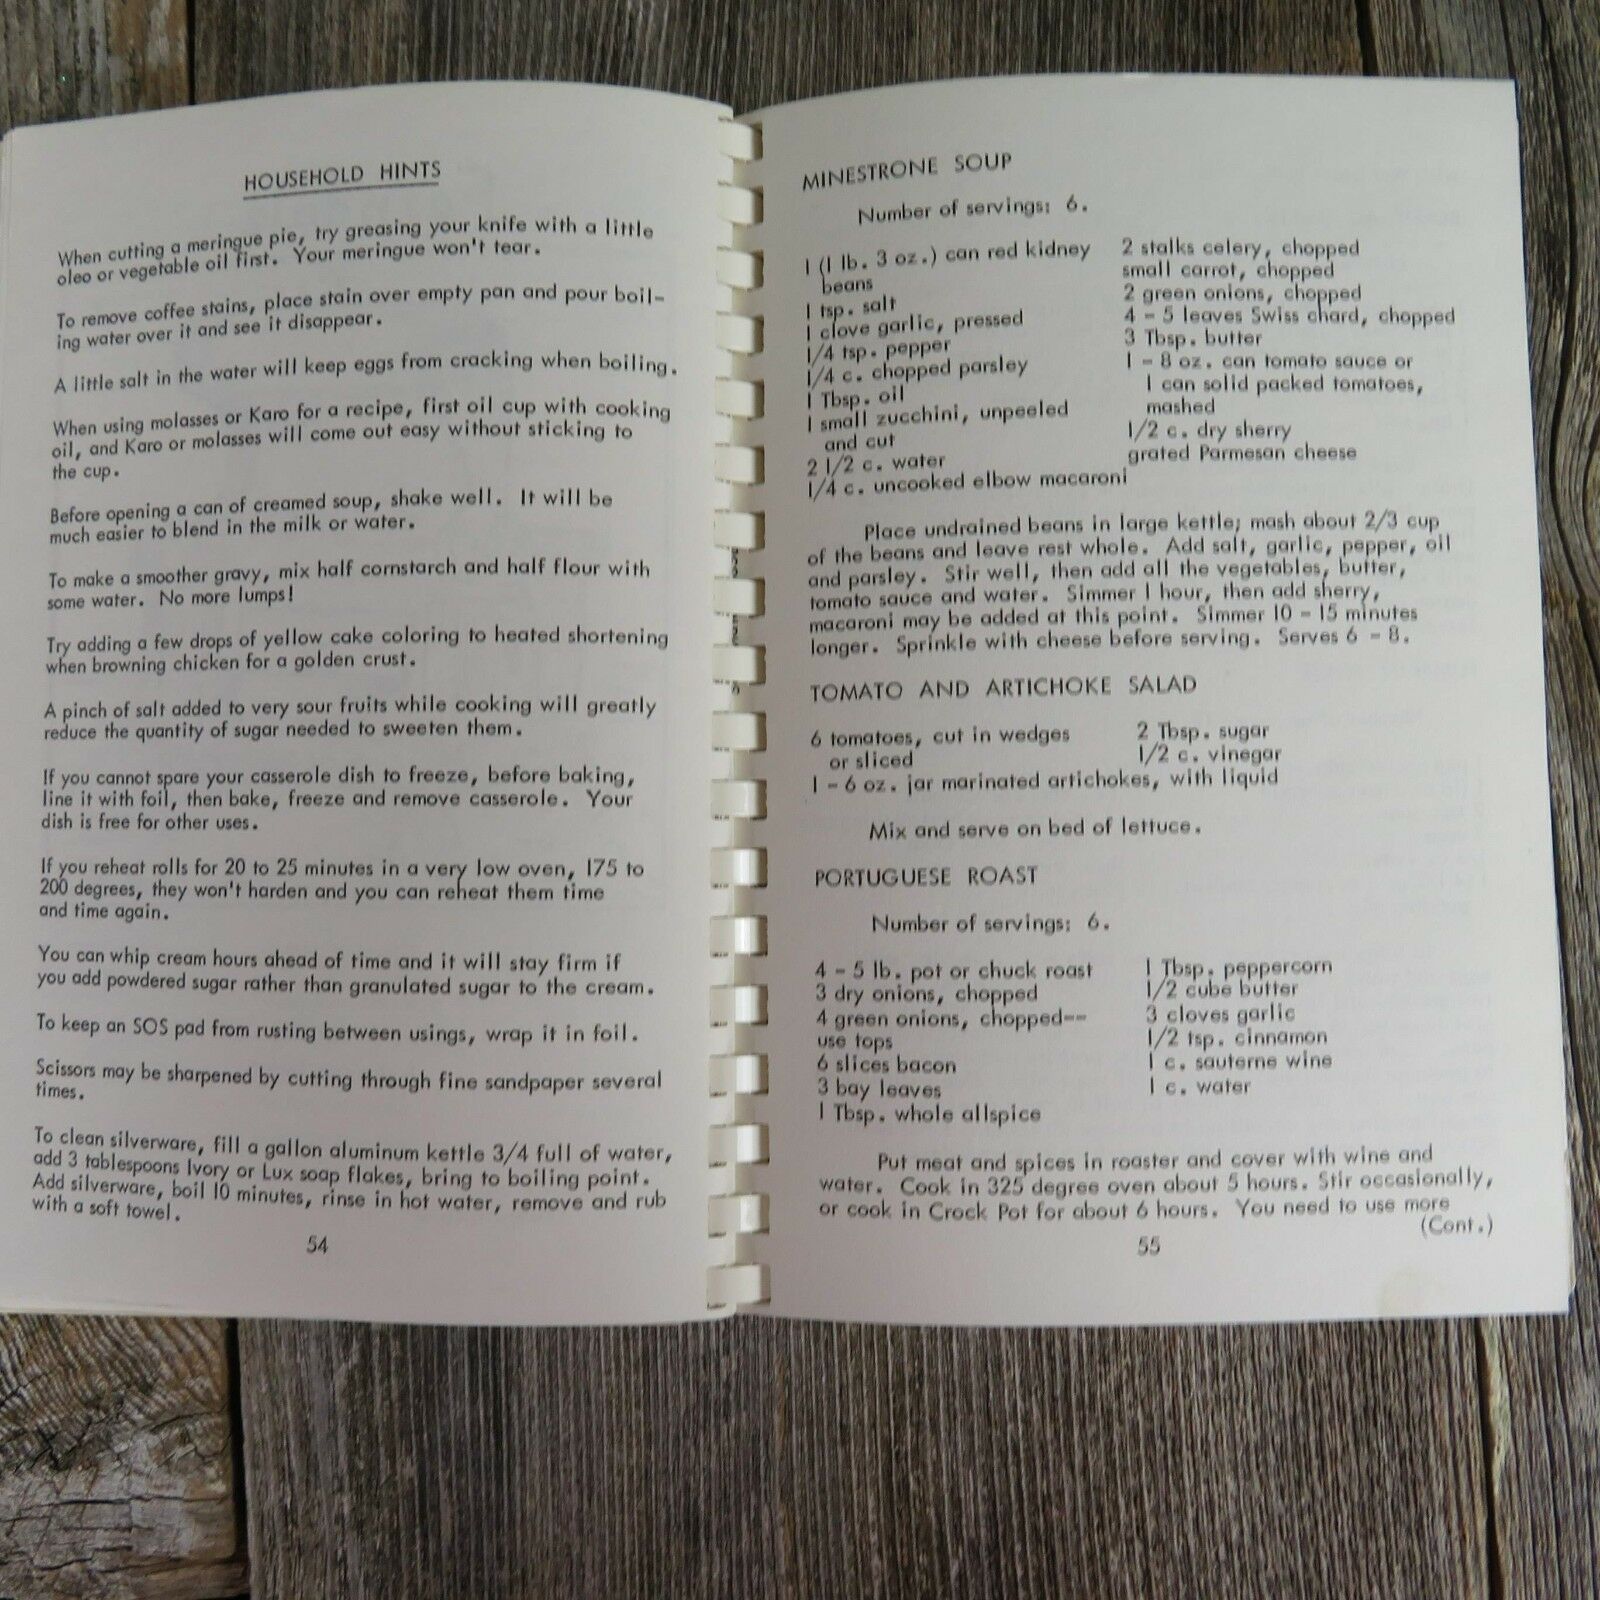 HOUSEHOLD HINTS
When cutting a meringue pie, try greasing your knife with a little
oleo or vegetable oil first. Your meringue won't tear.
To remove coffee stains, place stain over empty pan and pour boil-
ing water over it and see it disappear.
A little salt in the water will keep eggs from cracking when boiling.
When using molasses or Karo for a recipe, first oil cup with cooking
oil, and Karo or molasses will come out easy without sticking to
the cup.
Before opening a can of creamed soup, shake well. It will be
much easier to blend in the milk or water.
To make a smoother gravy, mix half cornstarch and half flour with
some water. No more lumps!
Try adding a few drops of yellow cake coloring to heated shortening
when browning chicken for a golden crust.
A pinch of salt added to very sour fruits while cooking will greatly
reduce the quantity of sugar needed to sweeten them.
If you cannot spare your casserole dish to freeze, before baking,
line it with foil, then bake, freeze and remove casserole. Your
dish is free for other uses.
If you reheat rolls for 20 to 25 minutes in a very low oven, 175 to
200 degrees, they won't harden and you can reheat them time
and time again.
You can whip cream hours ahead of time and it will stay firm if
you add powdered sugar rather than granulated sugar to the cream.
To keep an SOS pad from rusting between usings, wrap it in foil.
Scissors may be sharpened by cutting through fine sandpaper several
times.
To clean silverware, fill a gallon aluminum kettle 3/4 full of water,
add 3 tablespoons Ivory or Lux soap flakes, bring to boiling point.
Add silverware, boil 10 minutes, rinse in hot water, remove and rub
with a soft towel.
54
MINESTRONE SOUP
Number of servings: 6.
1 (1 lb. 3 oz.) can red kidney
beans
1 tsp. salt
1 clove garlic, pressed
1/4 tsp. pepper
1/4 c. chopped parsley
1 Tbsp. oil
1 small zucchini, unpeeled
and cut
2 1/2 c. water
1/4 c. uncooked elbow macaroni
2 stalks celery, chopped
small carrot, chopped
2 green onions, chopped
4 - 5 leaves Swiss chard, chopped
3 Tbsp. butter
1 - 8 oz. can tomato sauce or
1 can solid packed tomatoes,
mashed
1/2 c. dry sherry
grated Parmesan cheese
Place undrained beans in large kettle; mash about 2/3 cup
of the beans and leave rest whole. Add salt, garlic, pepper, oil
and parsley. Stir well, then add all the vegetables, butter,
tomato sauce and water. Simmer 1 hour, then add sherry,
macaroni may be added at this point. Simmer 10 - 15 minutes
longer. Sprinkle with cheese before serving. Serves 6 - 8.
TOMATO AND ARTICHOKE SALAD
6 tomatoes, cut in wedges
or sliced
1 - 6 oz. jar marinated artichokes, with liquid
2 Tbsp. sugar
1/2 c. vinegar
Mix and serve on bed of lettuce.
PORTUGUESE ROAST
Number of servings: 6.
4 - 5 lb. pot or chuck roast
3 dry onions, chopped
4 green onions, chopped--
use tops
6 slices bacon
3 bay leaves
1 Tbsp. whole allspice
1 Tbsp. peppercorn
1/2 cube butter
3 cloves garlic
1/2 tsp. cinnamon
1 c. sauterne wine
1 c. water
Put meat and spices in roaster and cover with wine and
water. Cook in 325 degree oven about 5 hours. Stir occasionally,
or cook in Crock Pot for about 6 hours. You need to use more
(Cont.)
55